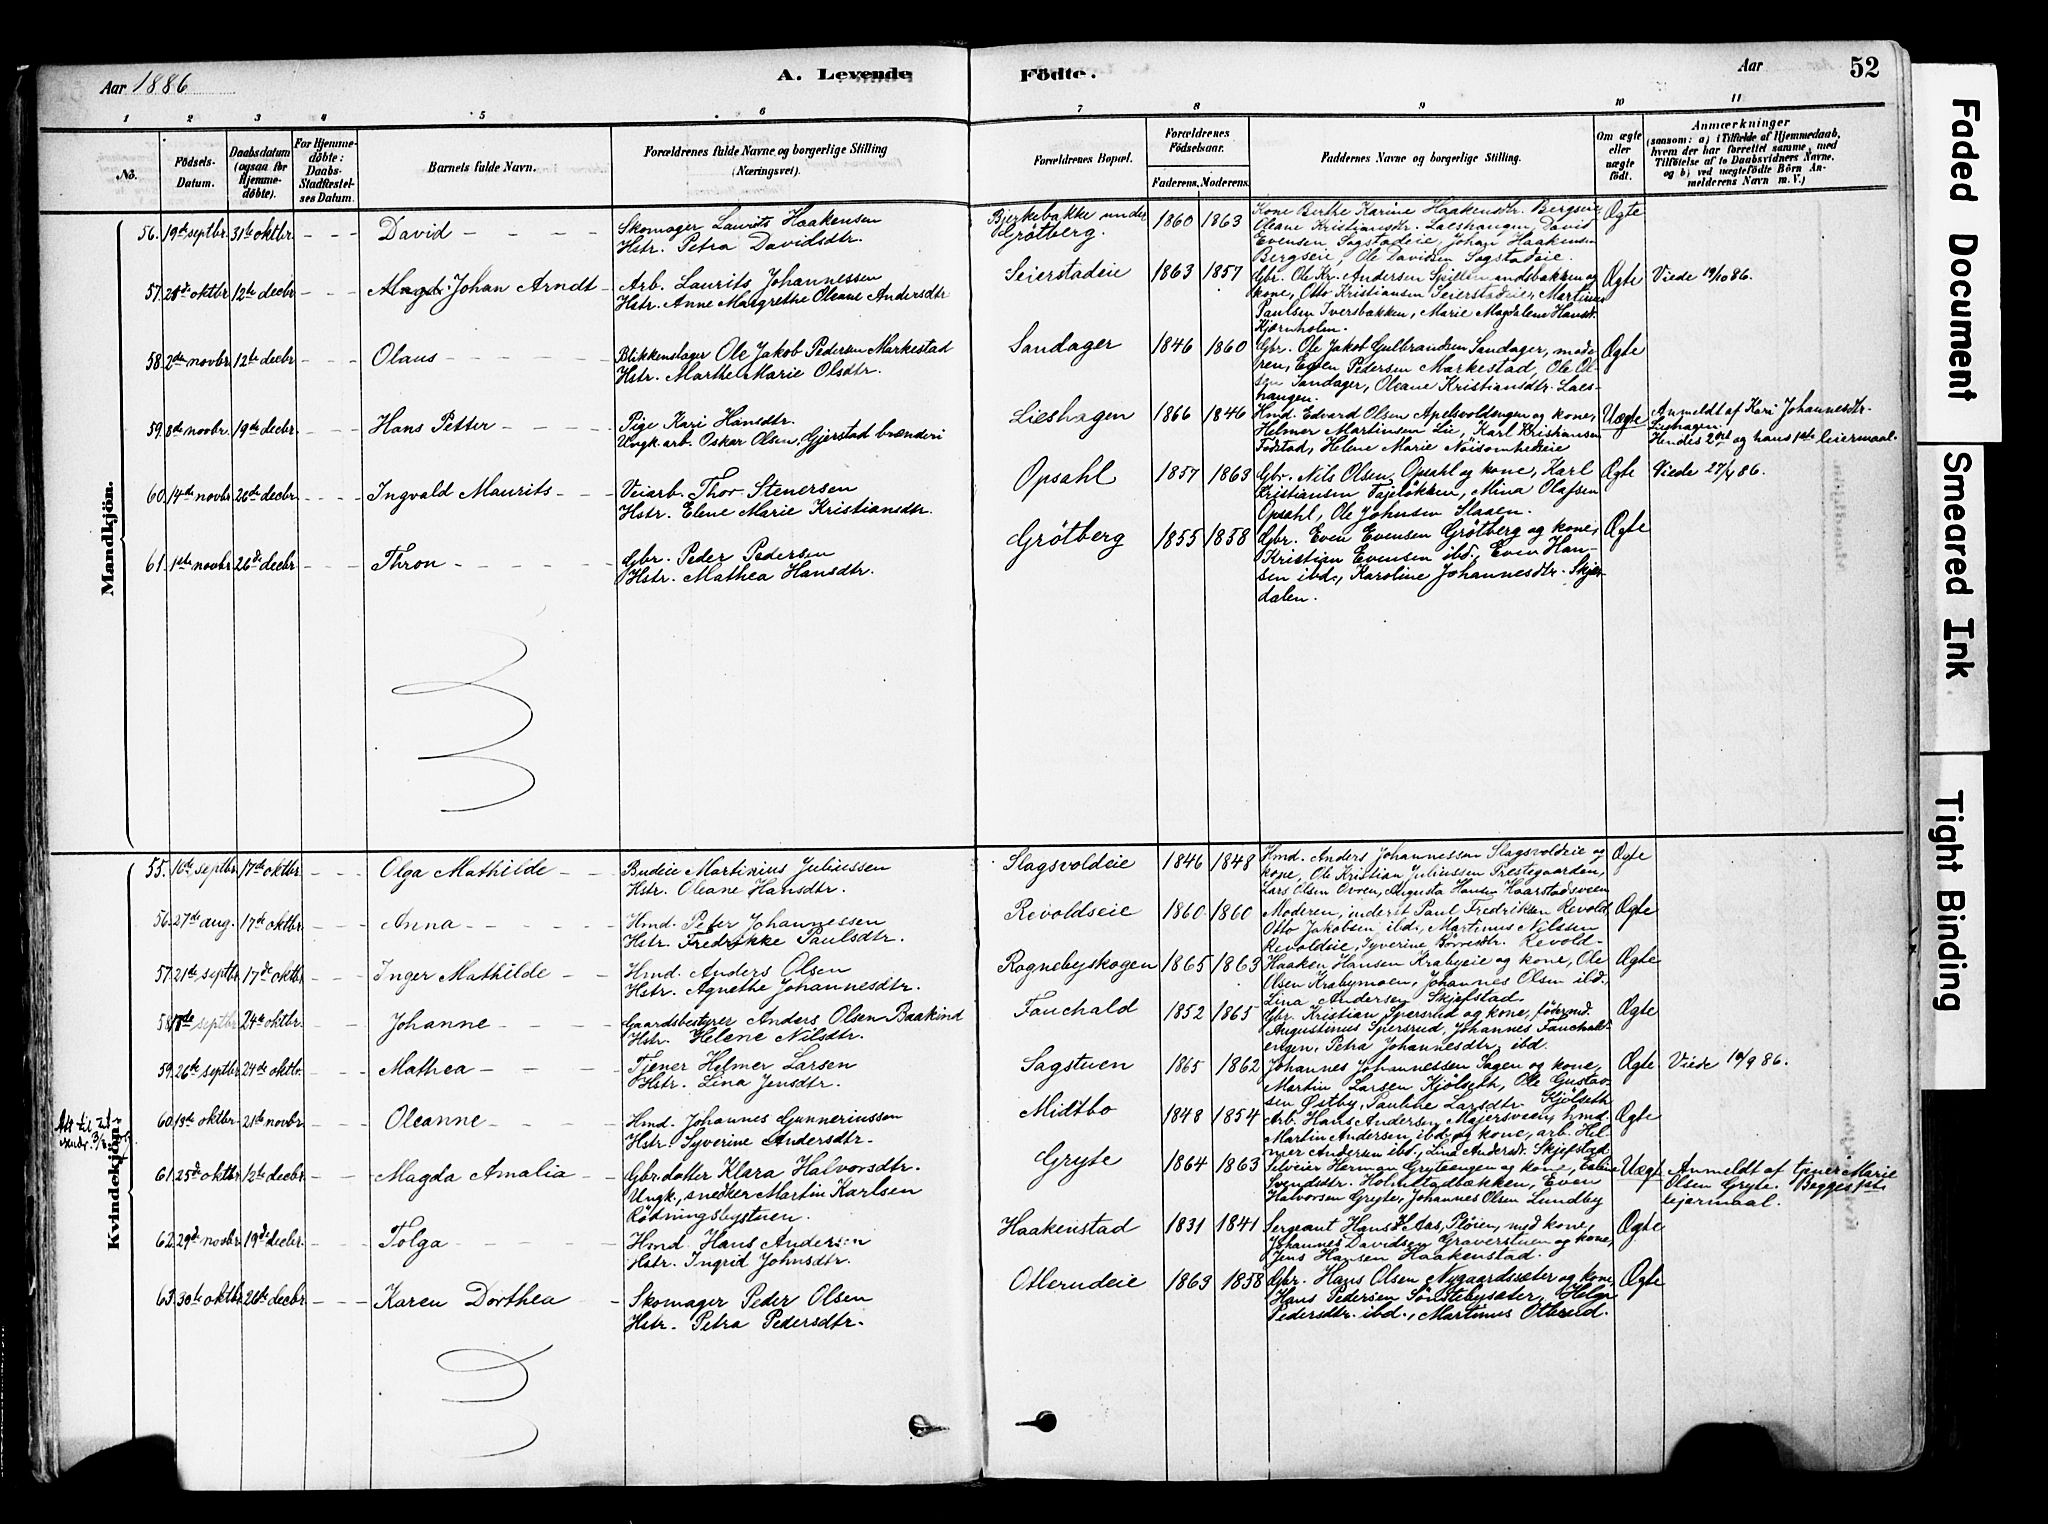 Aar 1886
A. Levende
Födte.
Aar
52
1 2 3 4 5 6 7 8 9 10 11
No.
Födsels-Datum.
Daabsdatum (ogsaa for Hjemmedøbte).
For Hjemmedøbte: Daabs-Stadfæstelses Datum.
Barnets fulde Navn.
Forældrenes fulde Navne og borgerlige Stilling (Næringsvei).
Forældrenes Bopæl.
Forældrenes Födselsaar.
Faderens. Moderens.
Faddernes Navne og borgerlige Stilling.
Om ægte eller uægte födt.
Anmærkninger
(saasom: a) i Tilfælde af Hjemmedaab, hvem der har forrettet samme, med Tilföielse af to Daabsvidners Navne, og b) ved uægtefödte Börn Anmelderens Navn m. V.)
Mandkjön.
56. 19de septbr. 31te oktbr. - - - David - - - - Skomager Laurits Haakensen
Hstr. Petra Davidsdtr.
Bjerkebakke under Grötberg. 1860 1863
Kone Berthe Karine Haakensdtr. Bergseie
Oleane Kristiansdtr. Laeshangen, David
Evensen Sagstadeie, Johan Haakensen
Bergseie, Ole Davidsen Sagstadeie.
Ægte
57. 28de oktbr. 12te decbr. - - - Johan Arndt - Arb. Laurits Johannessen
Hstr. Anne Margrethe Oleane Andersdtr
Seierstadeie 1863 1857
Gbr. Ole Kr. Andersen Spillemandsbakken og
kone, Otto Kristiansen Seierstadeie, Martinus
Paulsen Iversbakken, Marie Magdalene Hansdtr.
Kjærnholm.
Ægte Viede 19/10 86.
58. 2den novbr. 12te decbr. - - - Olaus - - - - Blikkenslager Ole Jakob Pedersen Markestad
Hstr. Marthe Marie Olsdtr.
Sandager 1846 1860
Gbr. Ole Jakob Gulbrandsen Sandager, mode
ren, Even Pedersen Markestad, Ole Ol-
sen Sandager, Oleane Kristiansdtr. Laes-
hangen.
Ægte
59. 8de novbr. 19de decbr. - - - Hans Petter - - - Pige Kari Hansdtr.
Ungk. arb. Oskar Olsen, Gjerstad brænderi
Lieshagen 1866 1846
Hmd. Edvard Olsen Apelsvoldengen og kone,
Helmer Martinsen Lie, Karl Kristiansen
Fodstad, Helene Marie Nöisomhedeie
Uægte
Anmeldt af Kari Johannesdtr.
Lieshagen.
Hendes 2det og hans 1ste leiermaal.
60. 14de novbr. 26de decbr. - - - Ingvald Maurits - - - Veiarb. Thor Stenersen
Hstr. Elene Marie Kristiansdtr.
Opsahl 1857 1863
Gbr. Nils Olsen Opsahl og kone, Karl
Kristiansen Tajelökken, Mina Olafsen
Opsahl, Ole Johnsen Slaaen.
Ægte Viede 27/4 86.
61. 1ste novbr. 26de decbr. - - - Thron - - - - Gbr. Peder Pedersen
Hstr. Mathea Hansdtr.
Grötberg 1855 1858
Gbr. Even Evensen Grötberg og kone,
Kristian Evensen ibd., Even Han-
sen ibd., Karoline Johannesdtr. Skjer-
dalen.
Ægte
Kvindekjön.
55. 16de septbr. 17de oktbr. - - - Olga Mathilde - - Budeie Martinius Juliussen
Hstr. Oleane Hansdtr.
Slagsvoldeie 1846 1848
Hmd. Anders Johannessen Slagsvoldeie og
kone, Ole Kristian Juliussen Prestegaarden,
Lars Olsen Ovren, Augusta Hansen Haarstadsveen
Ægte
56. 27de aug. 17de oktbr. - - - Anna - - - - Hmd. Peter Johannessen
Hstr. Fredrikke Paulsdtr.
Revoldseie 1860 1860
Moderen, inderst Paul Fredriksen Revold,
Otto Jakobsen ibd., Martinus Nilsen
Revoldeie, Syverine Börresdtr. Revold-
Ægte
57. 21de septbr. 17de oktbr. - - - Inger Mathilde - - Hmd. Anders Olsen
Hstr. Agnethe Johannesdtr.
Rognebyskogen 1865 1863
Haaken Hansen Krabyeie og kone, Ole
Olsen Krabymoen, Johannes Olsen ibd.
Lina Andersen Skjefstad.
Ægte
58. 18de septbr. 24de oktbr. - - - Johanne - - - - Gaardsbestyrer Anders Olsen Baakind
Hstr. Helene Nilsdtr.
Fauchald 1852 1865
Gbr. Kristian Spersrud og kone, föderaad.
Augustinus Spersrud, Johannes Fauchald-
engen, Petra Johannesdtr. ibd.
Ægte
59. 26de septbr. 24de oktbr. - - - Mathea - - - - Tjener Helmer Larsen
Hstr. Lina Jensdtr.
Sagstuen 1865 1862
Johannes Johannessen Sagen og kone,
Martin Larsen Kjölseth, Ole Gustav-
sen Østby, Pauline Larsdtr. Kjölseth
Ægte Viede 10/9 86.
60. 13de oktbr. 21de novbr. - - - Oleanne - - - - Hmd. Johannes Gunneriussen
Hstr. Syverine Andersdtr.
Midtbo 1848 1854
Arb. Hans Andersen Majersveen, hmd.
Martin Andersen ibd. og kone, arb. Hel-
mer Andersen ibd., Lina Andersdtr. Skjefstad
Ægte
61. 25de oktbr. 12te decbr. - - Magda Amalia - - Gbr.datter Klara Halvorsdtr.
Ungk., snedker Martin Karlsen
Rödningsbystuen.
Gryte 1864 1863
Selveier Herman Gryteengen og kone,
Svendsdtr. Holmstadbakken, Even
Halvorsen Gryte, Johannes Olsen Lundby
Uægt
Anmeldt af tjener Marie
Olsen Gryte. Begges 1ste
lejermaal.
62. 29de novbr. 19de decbr. - - - Tolga - - - - Hmd. Hans Andersen
Hstr. Ingrid Johnsdtr.
Haakenstad 1831 1841
Sergeant Hans H. Aas, Plöien, med kone,
Johannes Davidsen Graverstuen og kone,
Jens Hansen Haakenstad.
Ægte
63. 30te oktbr. 26de decbr. - - - Karen Dorthea - Skomager Peder Olsen
Hstr. Petra Pedersdtr.
Otterudeie 1863 1858
Gbr. Hans Olsen Nygaardssæter og kone,
Hans Pedersen Sönstebysæter, Helga
Pedersdtr. ibd., Martinus Otterud.
Ægte
Faded Document
Smeared Ink
Tight Binding